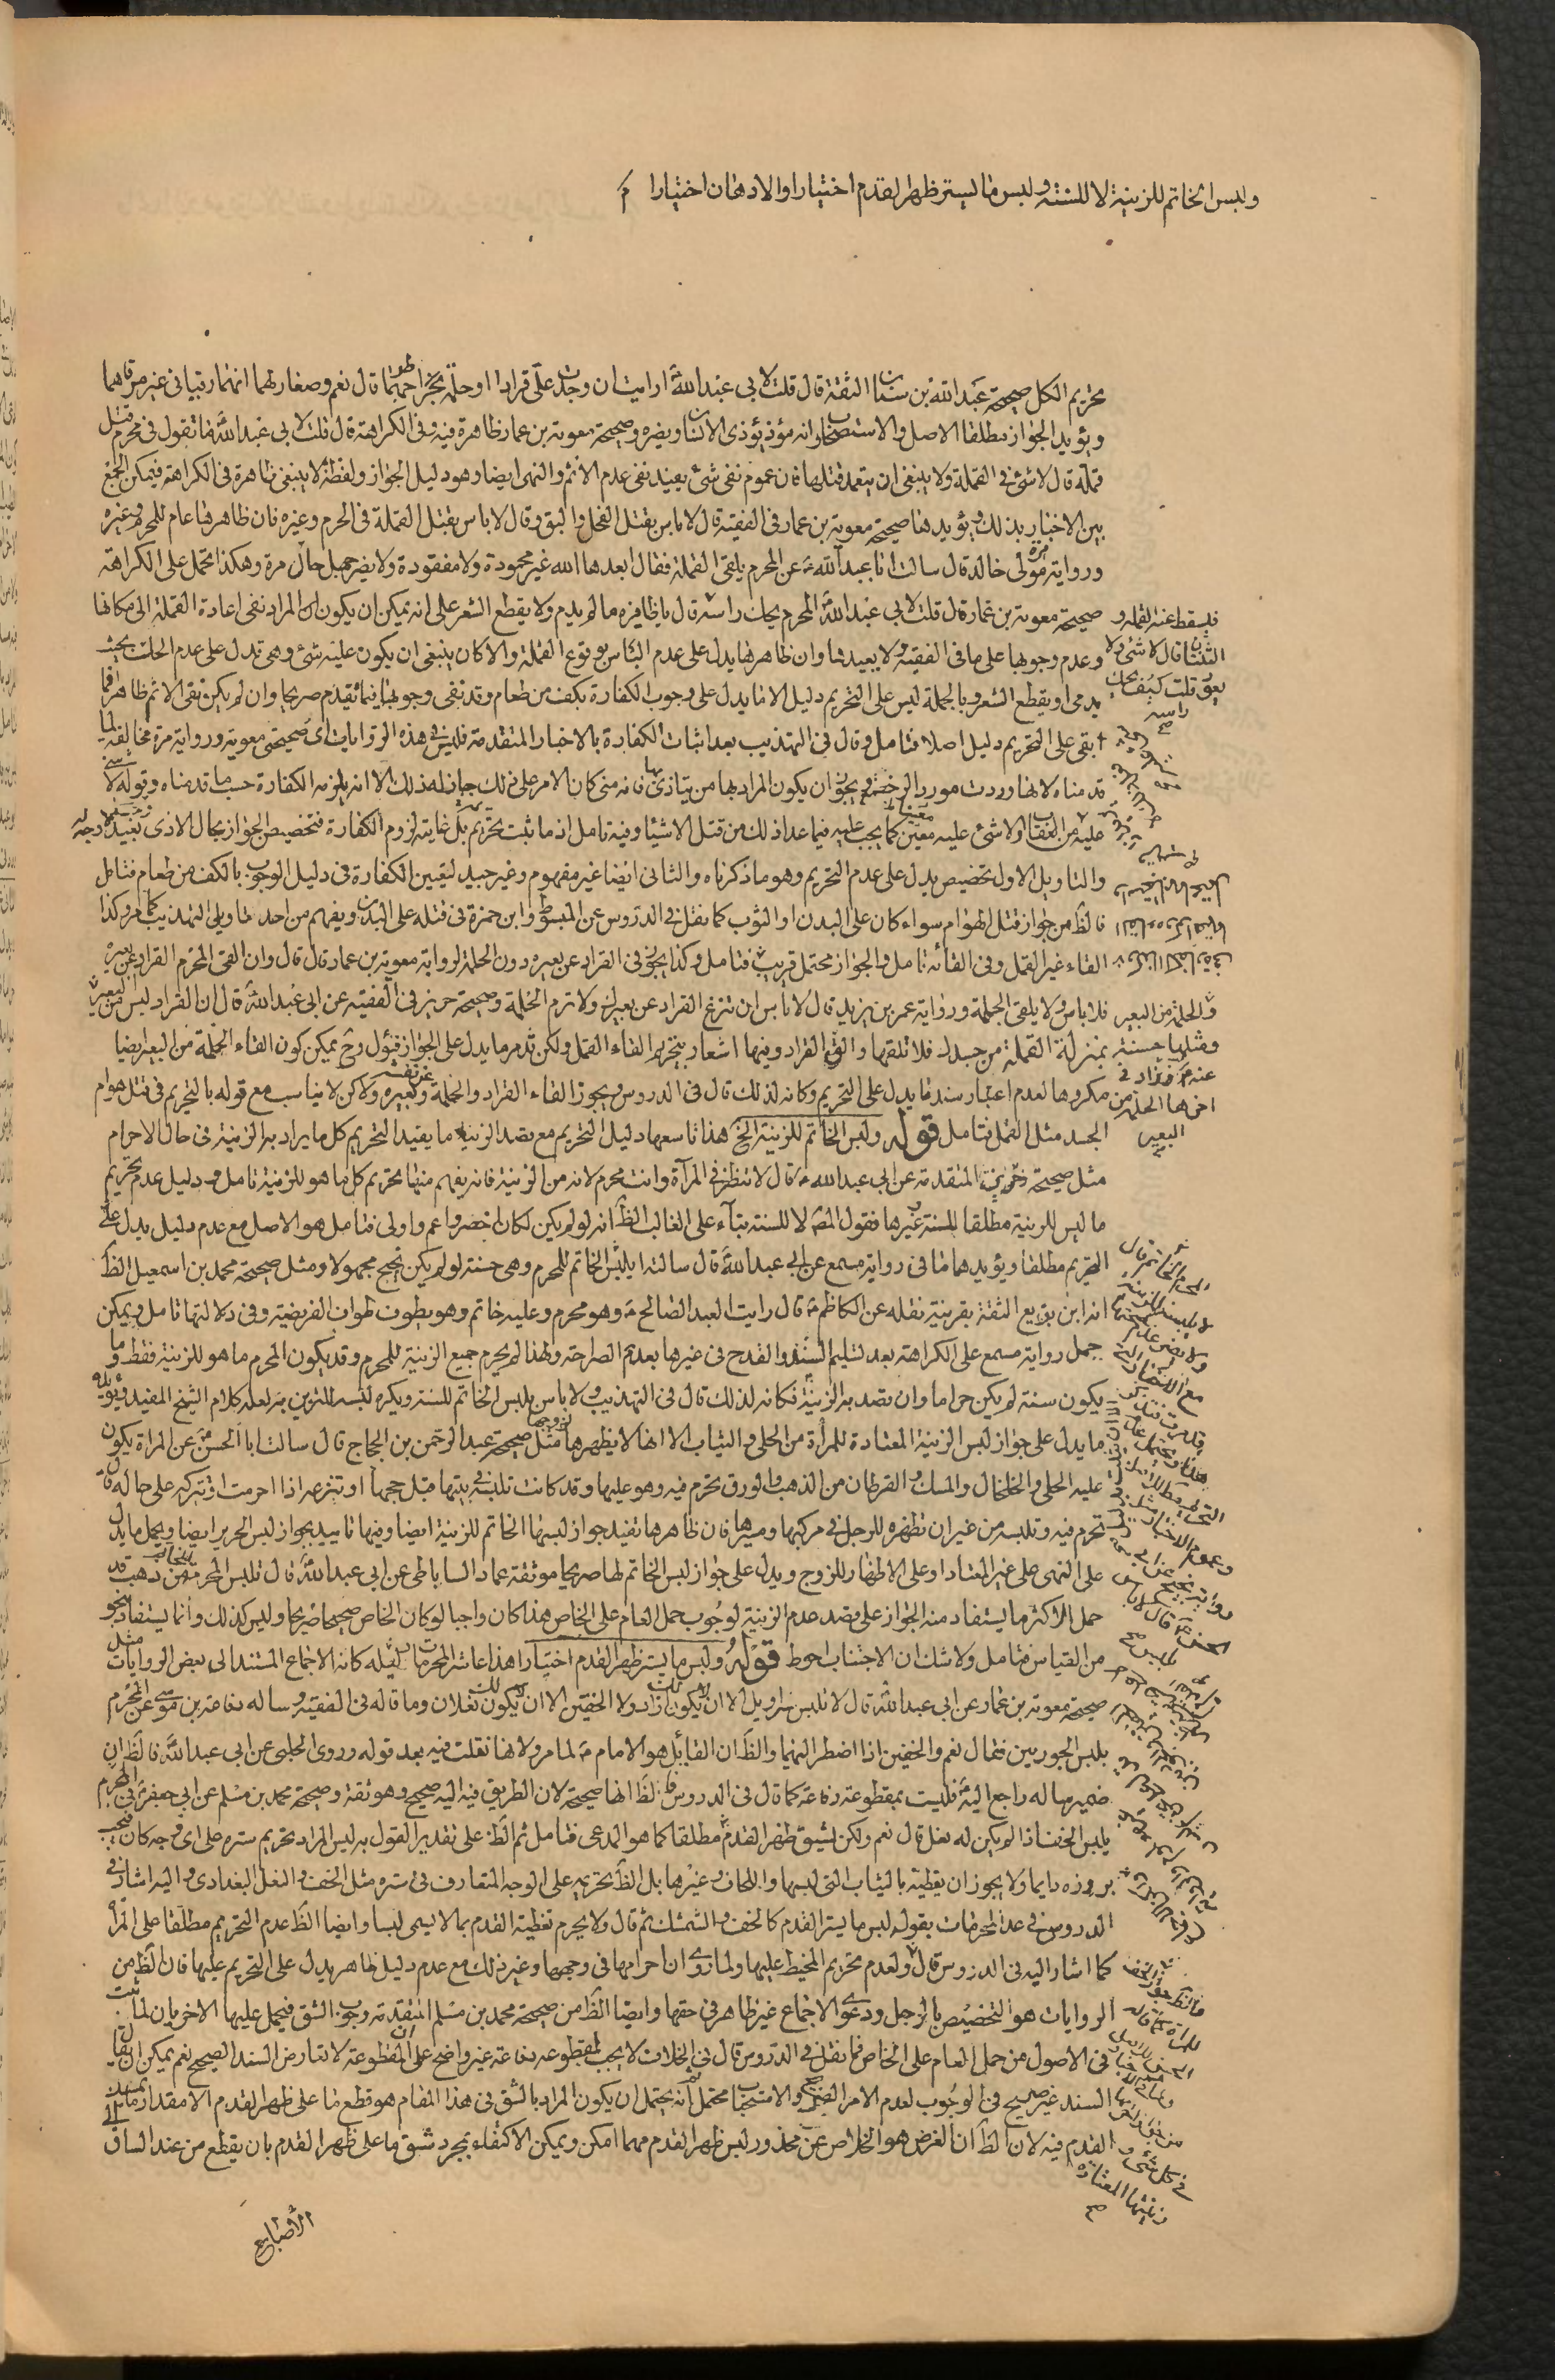 ولبس الخاتم للزينة لا للسنة ولبس ما يستر ظهر القدم اختيارا والادهان اختيارا
تحريم الكل صحيحة عبد الله بن سنان الثقة قال قلت لابي عبد الله ارايت ان وجدت على قرادا او حلمة اطرحهما قال نعم وصغار لهما انهما رقيا في غير مرقاهما
ويؤيد الجواز مطلقا الاصل والاستصحاب وانه مؤذ يؤذي الانسان ويضره وصحيحة معوية بن عمار ظاهرة في الكراهة قال قلت لابي عبد الله ما تقول في محرم قتل
قملة قال لا شئ في القملة ولا ينبغي ان يتعمد قتلها فان عموم نفي شئ يفيد نفي عدم الاثم والنهى ايضا وهو دليل الجواز ولفظة لا ينبغي ظاهرة في الكراهة فيمكن الجمع
بين الاخبار بذلك ويؤيد هنا صحيحة معوية بن عمار في الفقيه قال لا باس بقتل النمل والبق وقال لا باس بقتل القملة في الحرم وغيره فان ظاهرها عام للمحرم وغيره
ورواية مرة مولى خالد قال سالت ابا عبد الله عن المحرم يلقى القملة فقال ابعدها الله غير محمودة ولا مفقودة ولا يضر جميل حال مرة وهكذا تحمل على الكراهة
صحيحة معوية بن عمار قال قلت لابي عبد الله المحرم يحك راسه قال باظافيره ما لم يدم ولا يقطع الشعر على انه يمكن ان يكون المراد نفي اعادة القملة الى مكانها
وعدم وجوبها على ما في الفقيه ولا يعيدها وان ظاهرها يدل على عدم الباس بوقوع القملة والا كان ينبغي ان يكون عليه شئ وهي تدل على عدم الحك بحيث
يدمى او يقطع الشعر وبالجملة ليس على التحريم دليل الا ما يدل على وجوب الكفارة بكف من طعام وقد نفى وجوبها فيما تقدم صريحا وان لم يكن نفى الاثم ظاهرا فما
ابقى على التحريم دليل اصلا فتامل وقال في التهذيب بعد اثبات الكفارة بالاخبار المتقدمة فليس في هذه الروايات اى صحيحتي معوية ورواية مرة مخالفة لما
قدمناه لانها وردت مورد الرخصة ويجوز ان يكون المراد بها من يتاذى بها فانه متى كان الامر على ذلك جاز له ذلك الا انه يلزمه الكفارة حسب ما قدمناه وقوله لا شئ
عليه من العقاب او لا شئ عليه معين كما يجب عليه فيما عدا ذلك من قتل الاشياء وفيه تامل اذ ما ثبت تحريم بل غايته لزوم الكفارة فتخصيص الجواز بحال الاذى بعيد
والتاويل الاول تخصيص يدل على عدم التحريم وهو ما ذكرناه والثاني ايضا غير مفهوم وغير جيد ليقين الكفارة في دليل الوجوب بالكف من طعام فتامل
فالظ من جواز قتل الهوام سواء كان على البدن او الثوب كما نقل في الدروس عن المبسوط وابن حمزة في قتله على البدن ويفهم من احد تاويلي التهذيب كما مر وكذا
القاء غير القمل وفي القائه تامل والجواز محتمل قريب فتامل وكذا يجوز في القراد عن بعيره دون الحلمة لرواية معوية بن عمار قال قال وان القى المحرم القراد عن بعيره
فلا باس ولا يلقى الحلمة ورواية عمر بن يزيد قال لا باس ان تنزع القراد عن بعيرك ولا ترم الحلمة وصحيحة حريز في الفقيه عن ابي عبد الله قال ان القراد ليس من البعير
والحلمة من البعير بمنزلة القملة من جسدك فلا تلقها والق القراد وفيها اشعار بتحريم القاء القمل ولكن تقدم ما يدل على الجواز فتؤول وح يمكن كون القاء الحلمة من البعير ايضا
مكروها لعدم اعتبار سند ما يدل على التحريم وكانه لذلك قال في الدروس ويجوز القاء القراد والحلمة عن نفسه وبعيره ولكن لا يناسب مع قوله بالتحريم في قتل هوام
الجسد مثل القمل فتامل قوله ولبس الخاتم للزينة الخ هذا تاسعها دليل التحريم مع قصد الزينة ما يفيد التحريم كل ما يراد به الزينة في حال الاحرام
مثل صحيحة حريز المتقدمة عن ابي عبد الله قال لا تنظر في المرآة وانت محرم لانه من الزينة فانه يفهم منها تحريم كل ما هو للزينة تامل ودليل عدم تحريم
ما ليس للزينة مطلقا للسنة وغيرها فقول المص لا للسنة بناء على الغالب الظ انه لو لم يكن لكان اخصر واعم واولى فتامل هو الاصل مع عدم دليل يدل على
التحريم مطلقا ويؤيدها ما في رواية مسمع عن ابي عبد الله قال سالته ايلبس الخاتم المحرم وهي حسنة لو لم يكن نجيح مجهولا ومثل صحيحة محمد بن اسمعيل الظ
انه ابن بزيع الثقة بقرينة نقله عن الكاظم قال رايت العبد الصالح وهو محرم وعليه خاتم وهو يطوف طواف الفريضة وفي دلالتها تامل ويمكن
حمل رواية مسمع على الكراهة بعد تسليم السند والقدح في غيرها بعدم الصراحة ولهذا لم يحرم جميع الزينة للمحرم وقد يكون المحرم ما هو للزينة فقط وما
يكون سنة لم يكن حراما وان قصد به الزينة فكانه لذلك قال في التهذيب ولا باس بلبس الخاتم للسنة ويكره لبسه للتزين به لعله كلام الشيخ المفيد ويؤيده
ما يدل على جواز لبس الزينة المعتادة للمرأة من الحلى والثياب الا انها لا يظهرها لزوجها مثل صحيحة عبد الرحمن بن الحجاج قال سالت ابا الحسن عن المراة يكون
عليها الحلى والخلخال والمسك والقرطان من الذهب والورق تحرم فيه وهو عليها وقد كانت تلبسه في بيتها قبل حجها او تنزعه اذا احرمت او تتركه على حاله قال
تحرم فيه وتلبسه من غير ان تظهره للرجل في مركبها ومسيرها فان ظاهرها تفيد جواز لبسها الخاتم للزينة ايضا وفيها تاييد بجواز لبس الحرير ايضا ويحمل ما يدل
على النهى على غير المعتاد او على الاظهار للزوج ويدل على جواز لبس الخاتم لها صريحا موثقة عمار الساباطي عن ابي عبد الله قال تلبس المحرمة الخاتم من ذهب قد
حمل الاكثر ما يستفاد منه الجواز على قصد عدم الزينة لوجوب حمل العام على الخاص هذا كان واجبا لو كان الخاص صحيحا صريحا وليس كذلك وانما يستفاد بنحو
من القياس فتامل ولا شك ان الاجتناب احوط قوله ولبس ما يستر ظهر القدم اختيارا هذا عاشر المحرمات دليله كانه الاجماع المستند الى بعض الروايات مثل
صحيحة معوية بن عمار عن ابي عبد الله قال لا تلبس سراويل الا ان لا يكون لك ازار ولا الخفين الا ان لا يكون لك نعلان وما قاله في الفقيه وساله رفاعة بن موسى عن المحرم
يلبس الجوربين فقال نعم والخفين اذا اضطر اليهما والظ ان القايل هو الامام لما مر ولانها نقلت فيه بعد قوله وروى الحلبي عن ابي عبد الله فالظ ان
ضمير ساله راجع اليه فليست بمقطوعة رفاعة كما قال في الدروس فالظ انها صحيحة لان الطريق فيه اليه صحيح وهو ثقة وصحيحة محمد بن مسلم عن ابي جعفر في المحرم
يلبس الخف اذا لم يكن له نعل قال نعم ولكن يشق ظهر القدم مطلقا كما هو المدعى فتامل ثم الظ على تقدير القول به ليس المراد تحريم ستره على اى وجه كان فيجب
بروزه دايما ولا يجوز ان يغطيه بالثياب التي لبسها واللحاف وغيرها بل الظ تحريمه على الوجه المتعارف في ستره مثل الخف والنعل البغدادى واليه اشار في
الدروس في عد المحرمات بقوله لبس ما يستر القدم كالخف والشمشك ثم قال ولا يحرم تغطية القدم بما لا يسمى لبسا وايضا الظ عدم التحريم مطلقا على المرأة
كما اشار اليه في الدروس قال ولعدم تحريم المخيط عليها ولما روى ان احرامها في وجهها وغير ذلك مع عدم دليل ظاهر يدل على التحريم عليها فان الظ من
الروايات هو التخصيص بالرجل ودعوى الاجماع غير ظاهر في حقها وايضا الظ من صحيحة محمد بن مسلم المتقدمة وجوب الشق فيحمل عليها الاخريان لما ثبت
في الاصول من حمل العام على الخاص فما نقل في الدروس قال في الخلاف لا يجب لمقطوعة رفاعة غير واضح على ان المقطوعة لا تعارض السند الصحيح نعم يمكن ان يقال
السند غير صحيح في الوجوب لعدم الامر الصريح والاستحباب محتمل ثم انه يحتمل ان يكون المراد بالشق في هذا المقام هو قطع ما على ظهر القدم الا مقدار ما يمسك
القدم فيه لان الظ ان الغرض هو الخلاص عن محذور لبس ظهر القدم مهما امكن ويمكن الاكتفاء بمجرد شق ما على ظهر القدم بان يقطع من عند الساق الى
الاصابع